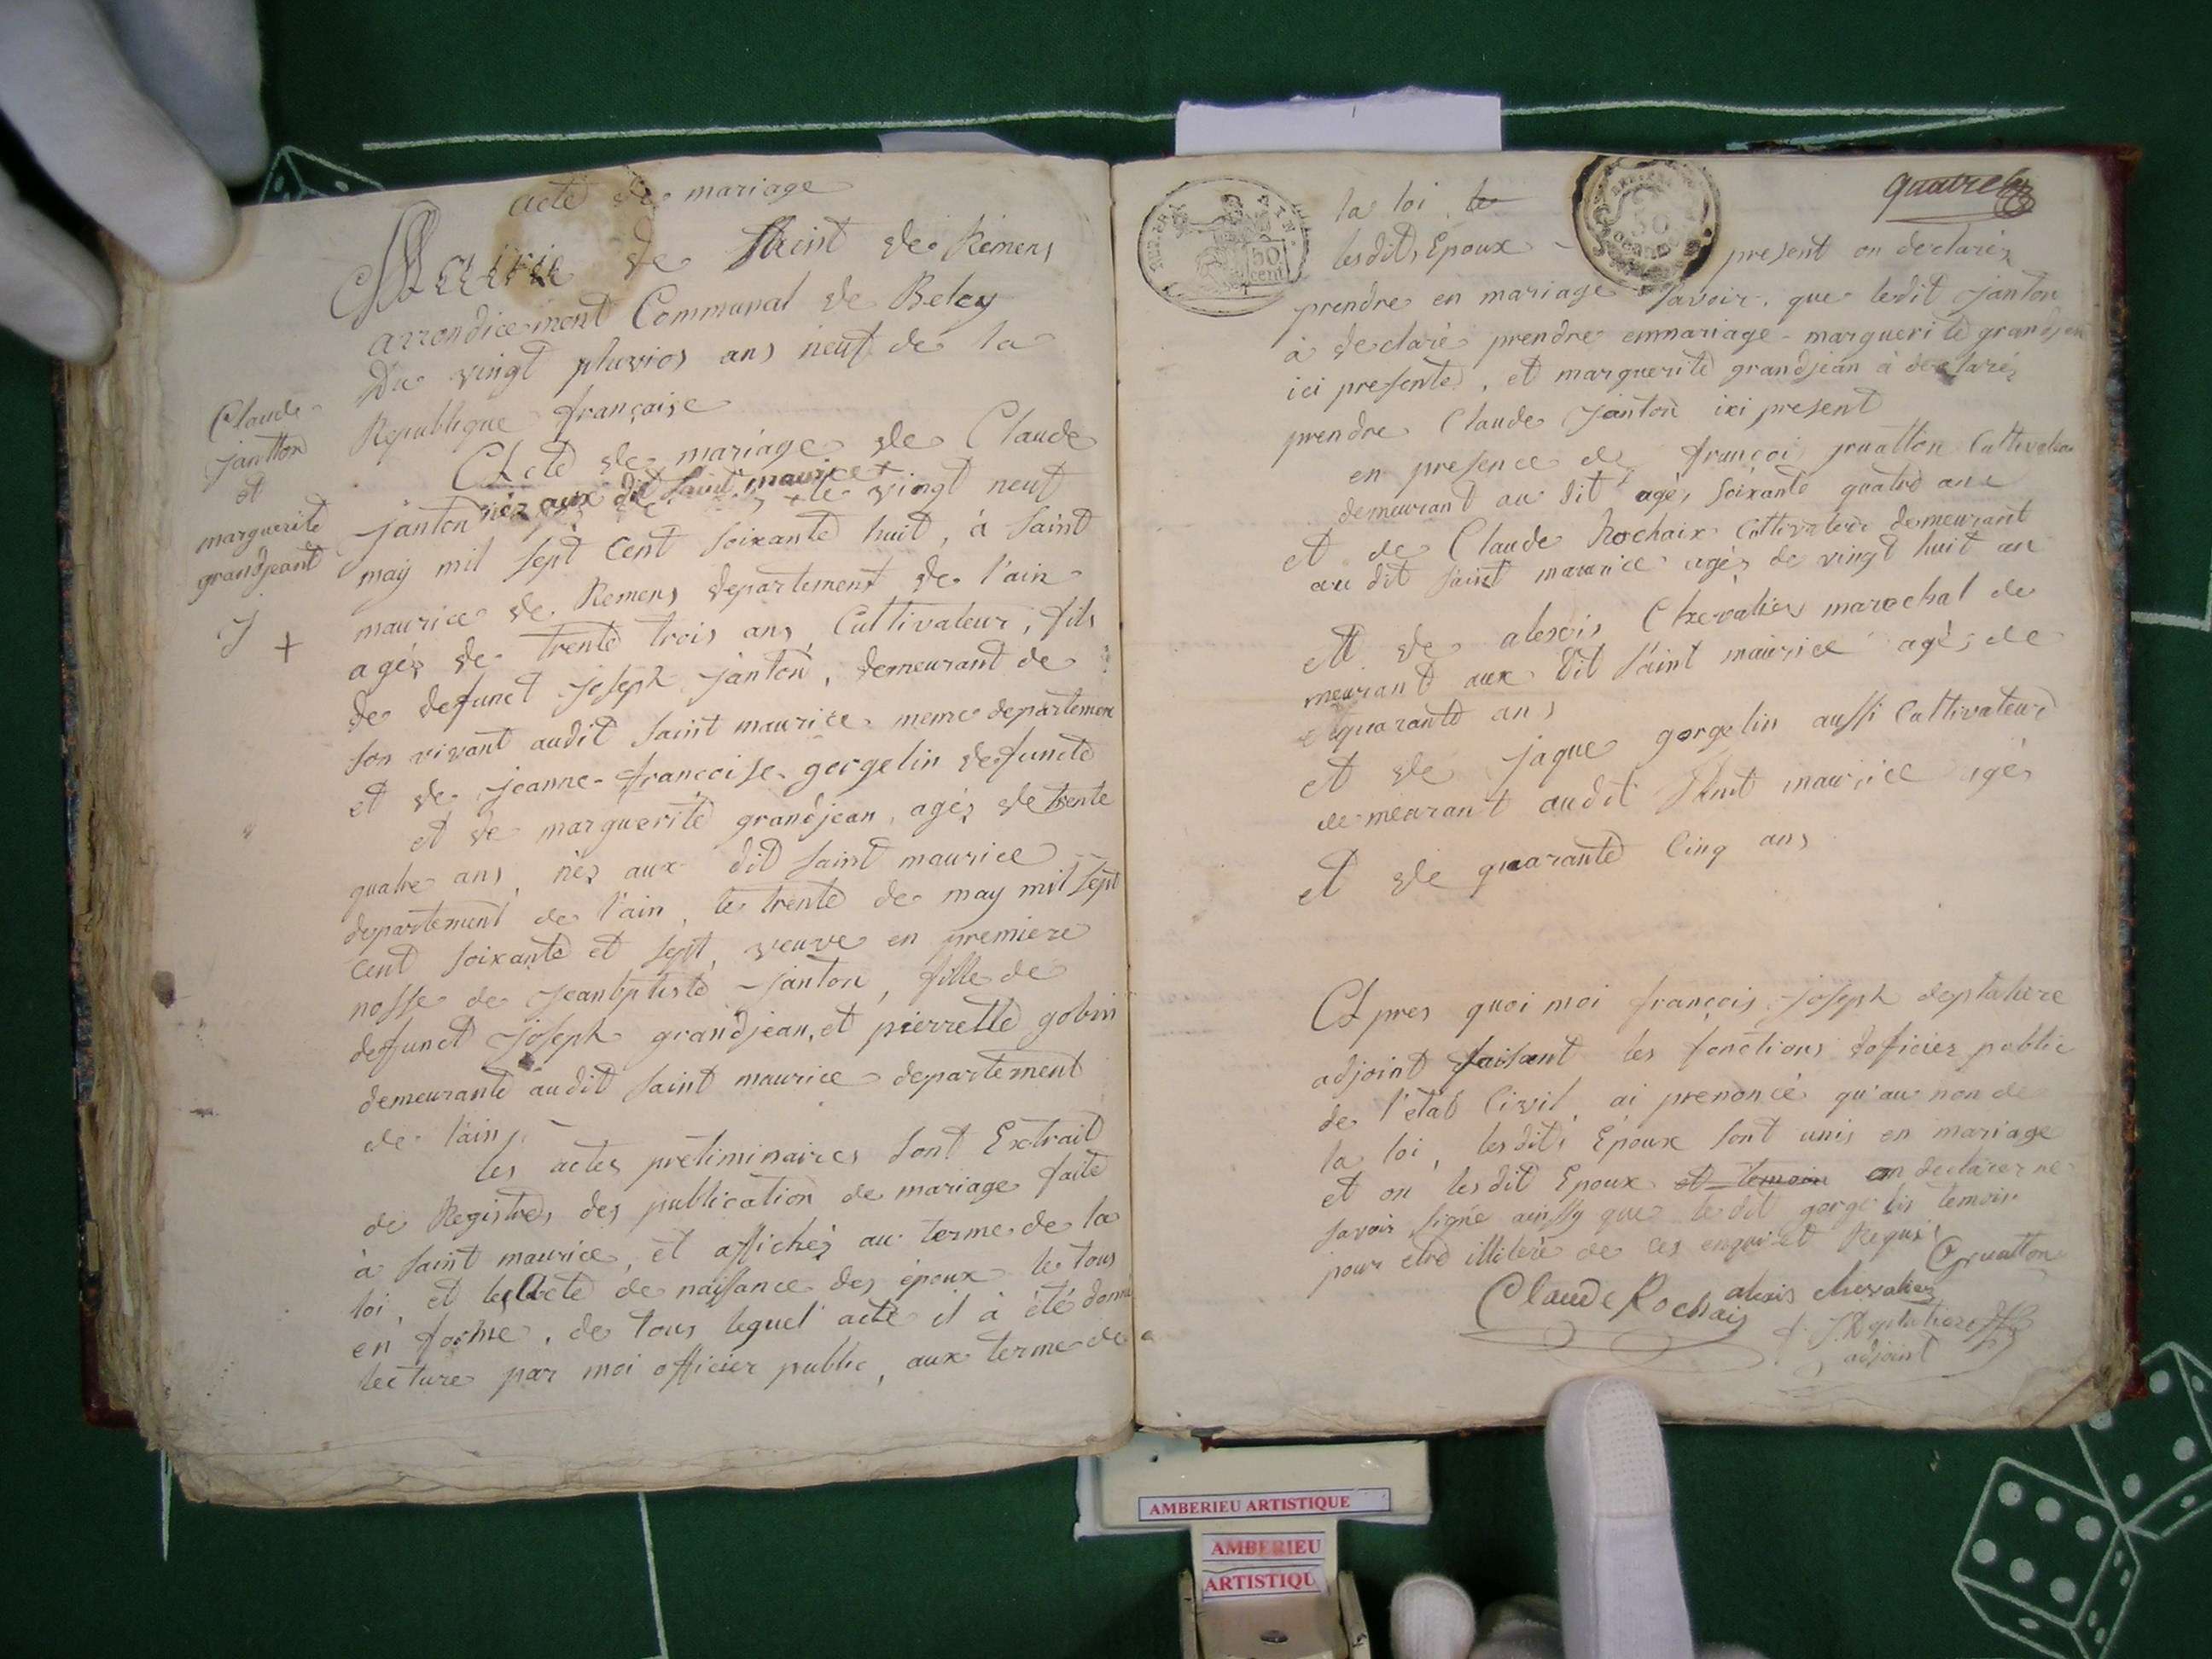 acte de mariage
Mairie de Saint de Rémens
arrondicement Communal de Beley
Du vingt pluvios ans neuf de la
Republique française
Claude
jantton
et
marguerite
grandjeant
J +
Acte de mariage de Claude
janton néz aux dit Saint maurice le vingt neuf
may mil sept Cent soixante huit, à Saint
maurice de Remens departement de l'ain
agéz de trente trois ans, Cultivateur, fils
de defunct joseph janton, demeurant de
son vivant audit Saint maurice meme departemen
et de jeanne-françoise gorgelin defuncte
et de marguerite grandjean, agéz de trente
quatre ans, néz aux dit Saint maurice
departement de l'ain, le trente de may mil sept
Cent soixante et sept, veuve en premiere
nosse de jeanbptiste janton, fille de
deffunct joseph grandjean, et pierrette gobin
demeurante audit saint maurice departement
de l'ain
les actes preliminaires sont Extrait
de Registres des publication de mariage faite
à Saint maurice, et affichéz au terme de la
loi, et les Acte de naissance des époux le tous
en forme, de tous lequel acte il à été donné
lecture par moi officier public, aux terme de
quatre
TIMB. NATIN.
50
cent
50
la loi le
lesdits Epoux present on declaréz
prendre en mariage savoir, que ledit janton
à declaré prendre enmariage marguerite grandjean
ici presente, et marguerite grandjean à declaréz
prendre Claude janton ici present
en presence de françois gruatton Cultivateur
demeurant au dit agéz soixante quatre ans
et de Claude Rochaix Cultivateur demeurant
au dit saint maurice agéz de vingt huit an
et de alexis Chevalier marechal de
meurant aux dit Saint maurice agéz de
quarante ans
et de jaque gorgelin aussi Cultivateur
demeurant audit Saint maurice agéz
et de quarante Cinq ans
Apres quoi moi françois joseph deplatiere
adjoint faisant les fonctions doficier public
de l'etat Civil, ai prenoncé qu'au non de
la loi, lesdits Epoux sont unis en mariage
et on lesdit Epoux et temoin on declarer ne
savoir signé ainssy que le dit gorgelin temoin
pour etre illiteré de ces enquit et Requis
Gruatton
Claude Rochaix alexis chevalier
adjoint
AMBERIEU ARTISTIQUE
AMBERIEU
ARTISTIQU